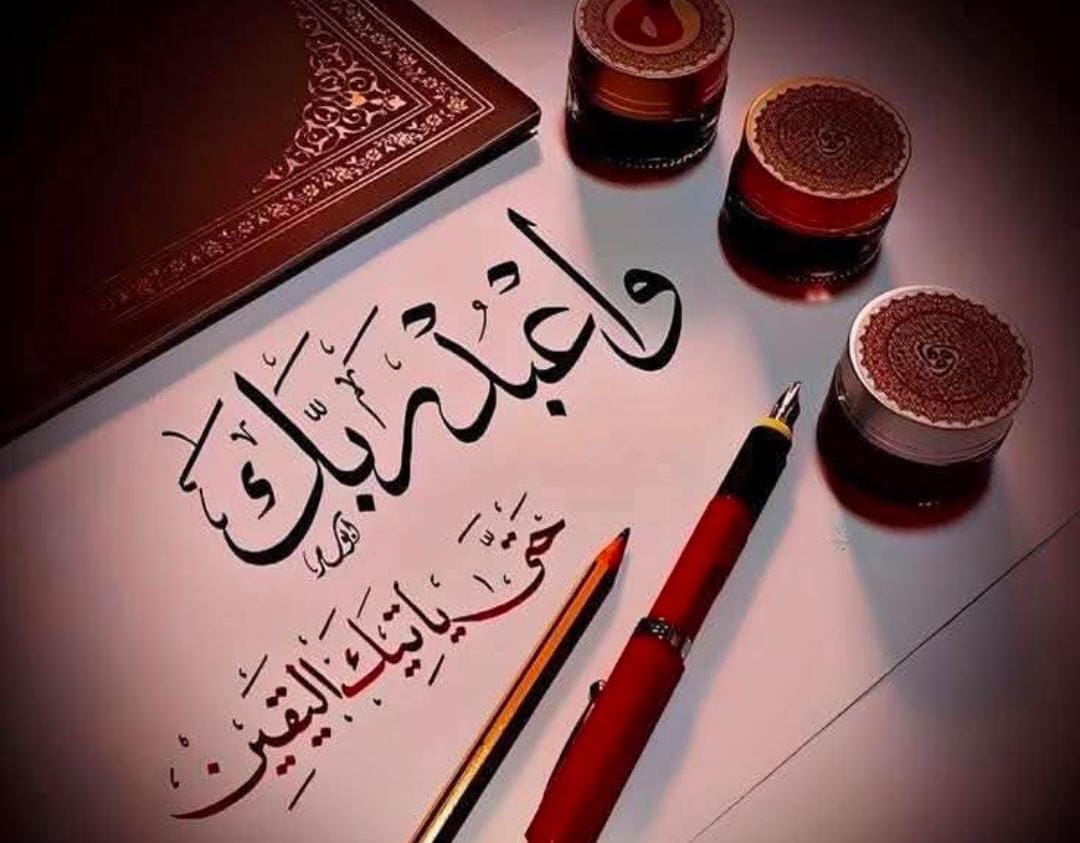 واعبد ربّك
حَتَّىٰ يَأْتِيَكَ الْيَقِينُ